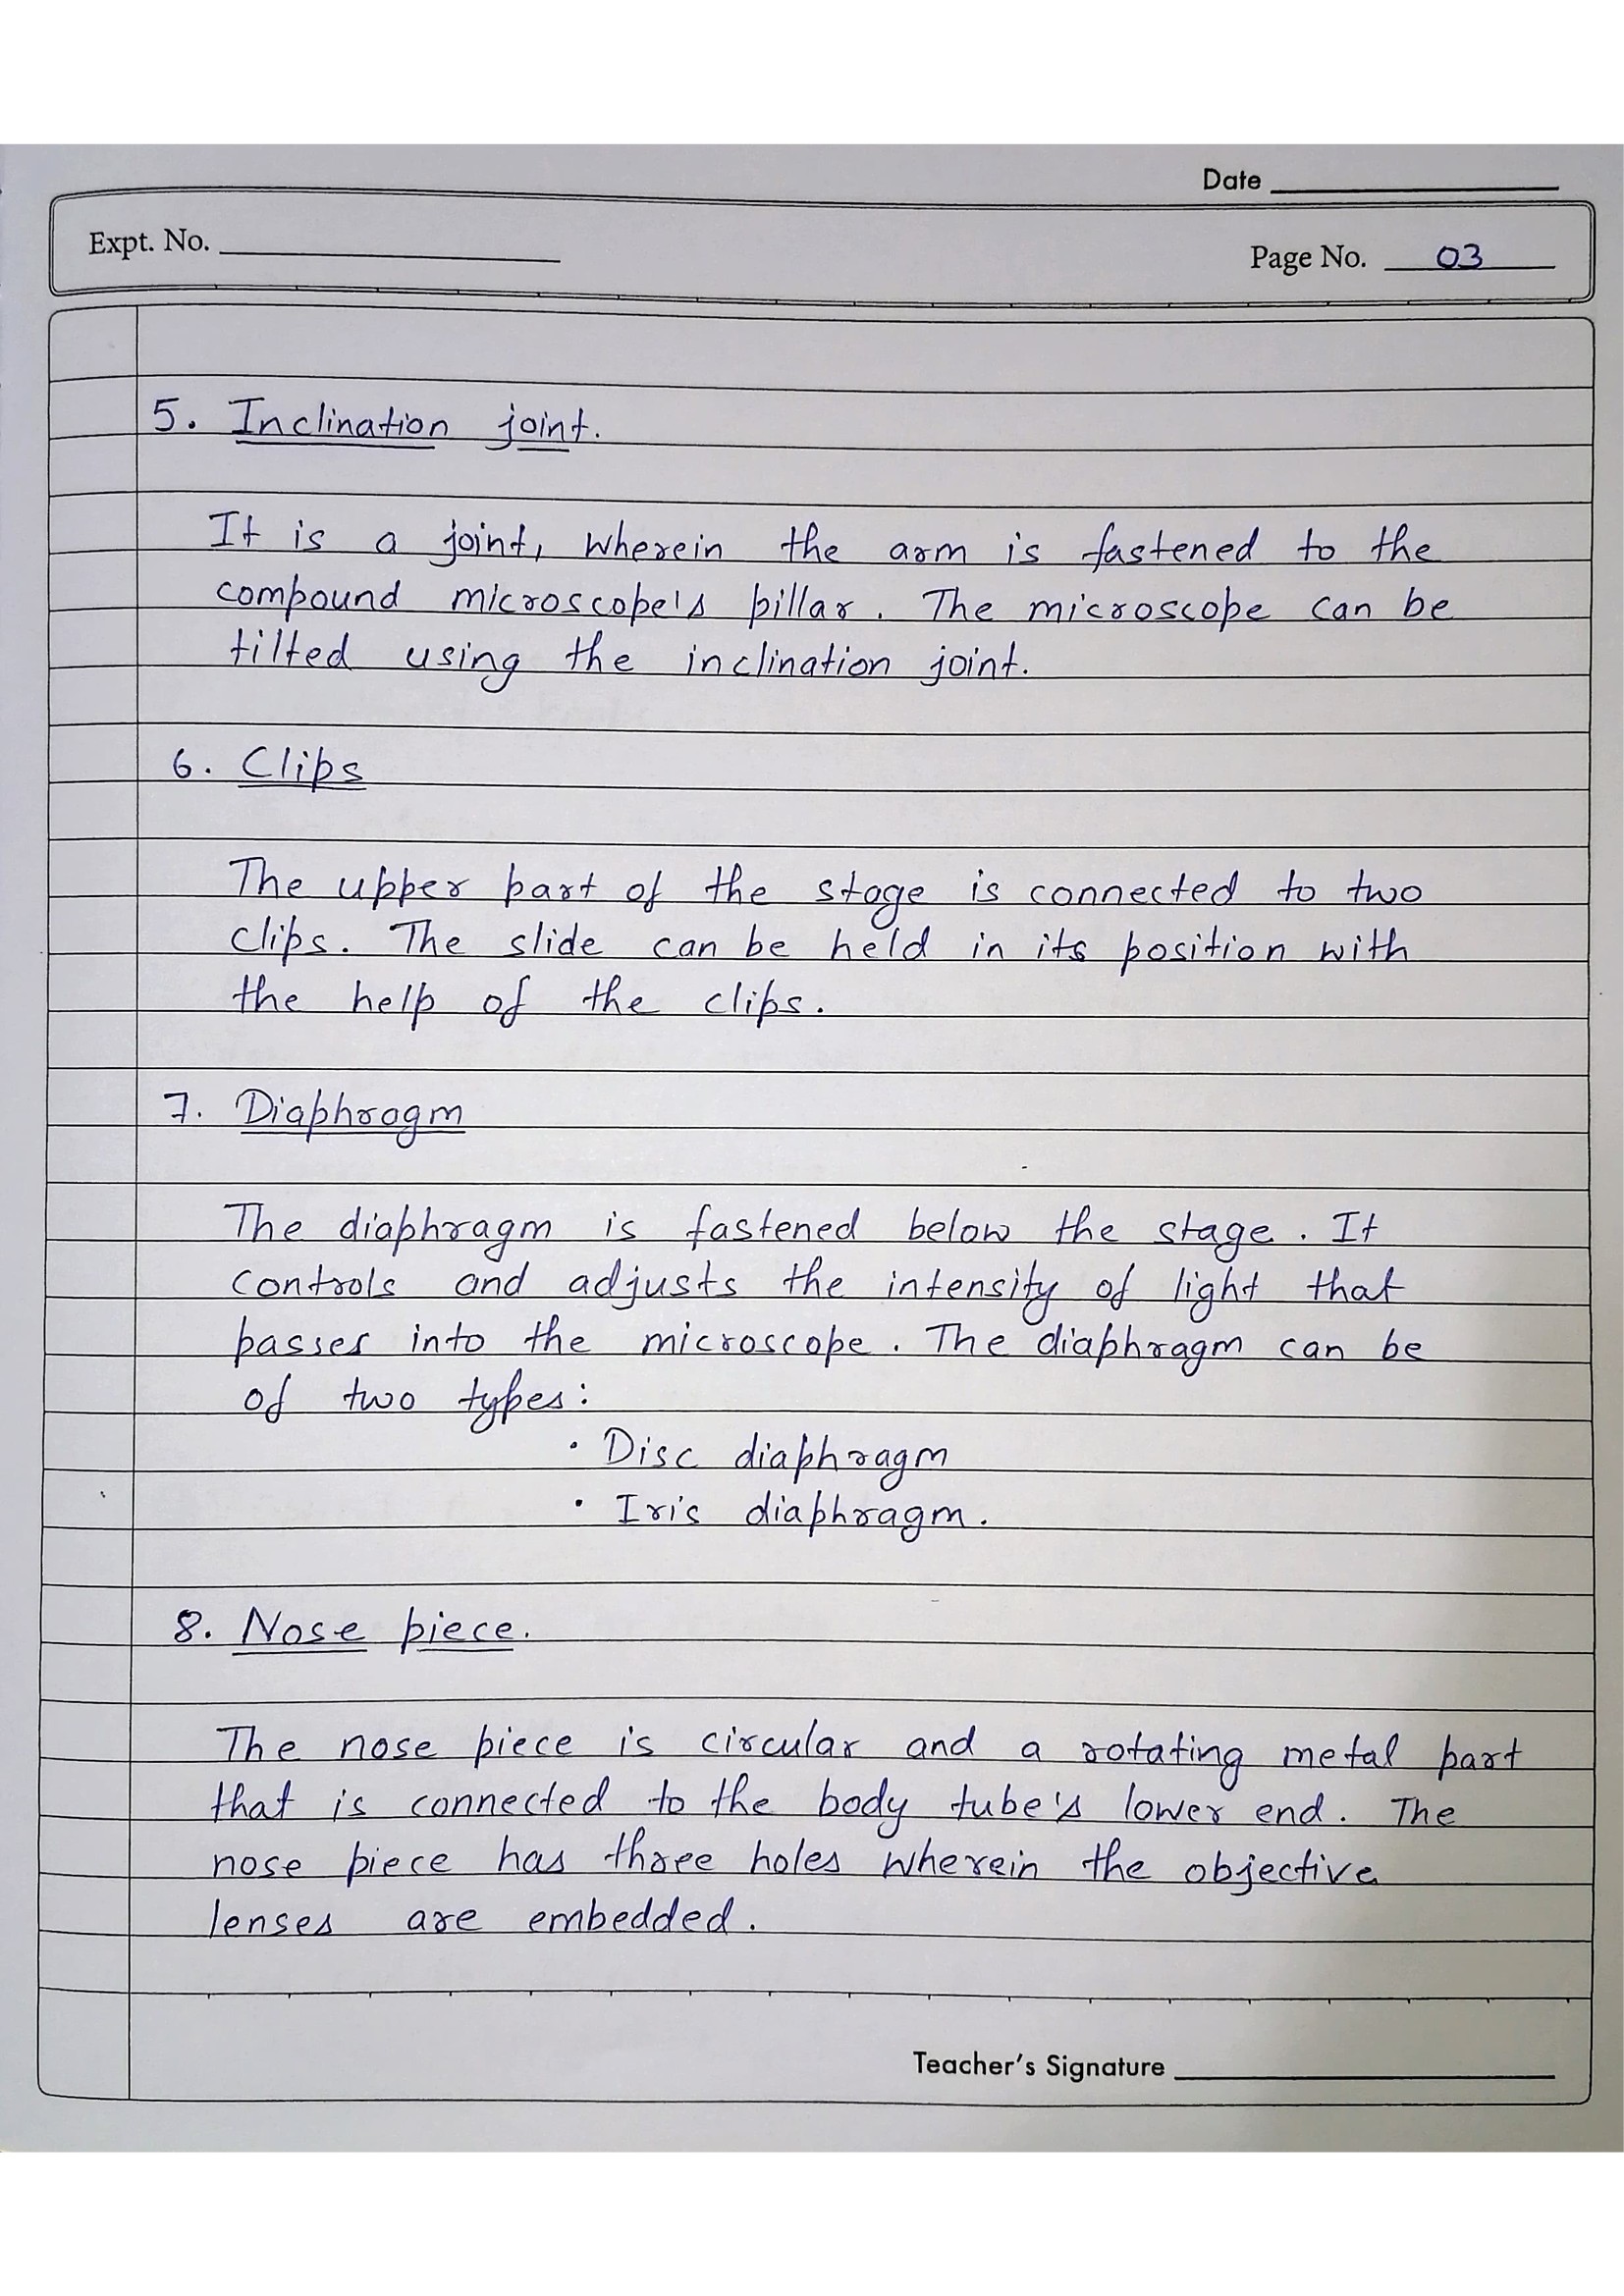 Date
Expt. No.
Page No. 03
5. Inclination joint.
It is a joint, wherein the arm is fastened to the
compound microscope's pillar. The microscope can be
tilted using the inclination joint.
6. Clips
The upper part of the stage is connected to two
clips. The slide can be held in its position with
the help of the clips.
7. Diaphragm
The diaphragm is fastened below the stage. It
controls and adjusts the intensity of light that
passes into the microscope. The diaphragm can be
of two types:
• Disc diaphragm
• Iris diaphragm.
8. Nose piece.
The nose piece is circular and a rotating metal part
that is connected to the body tube's lower end. The
nose piece has three holes wherein the objective
lenses are embedded.
Teacher's Signature